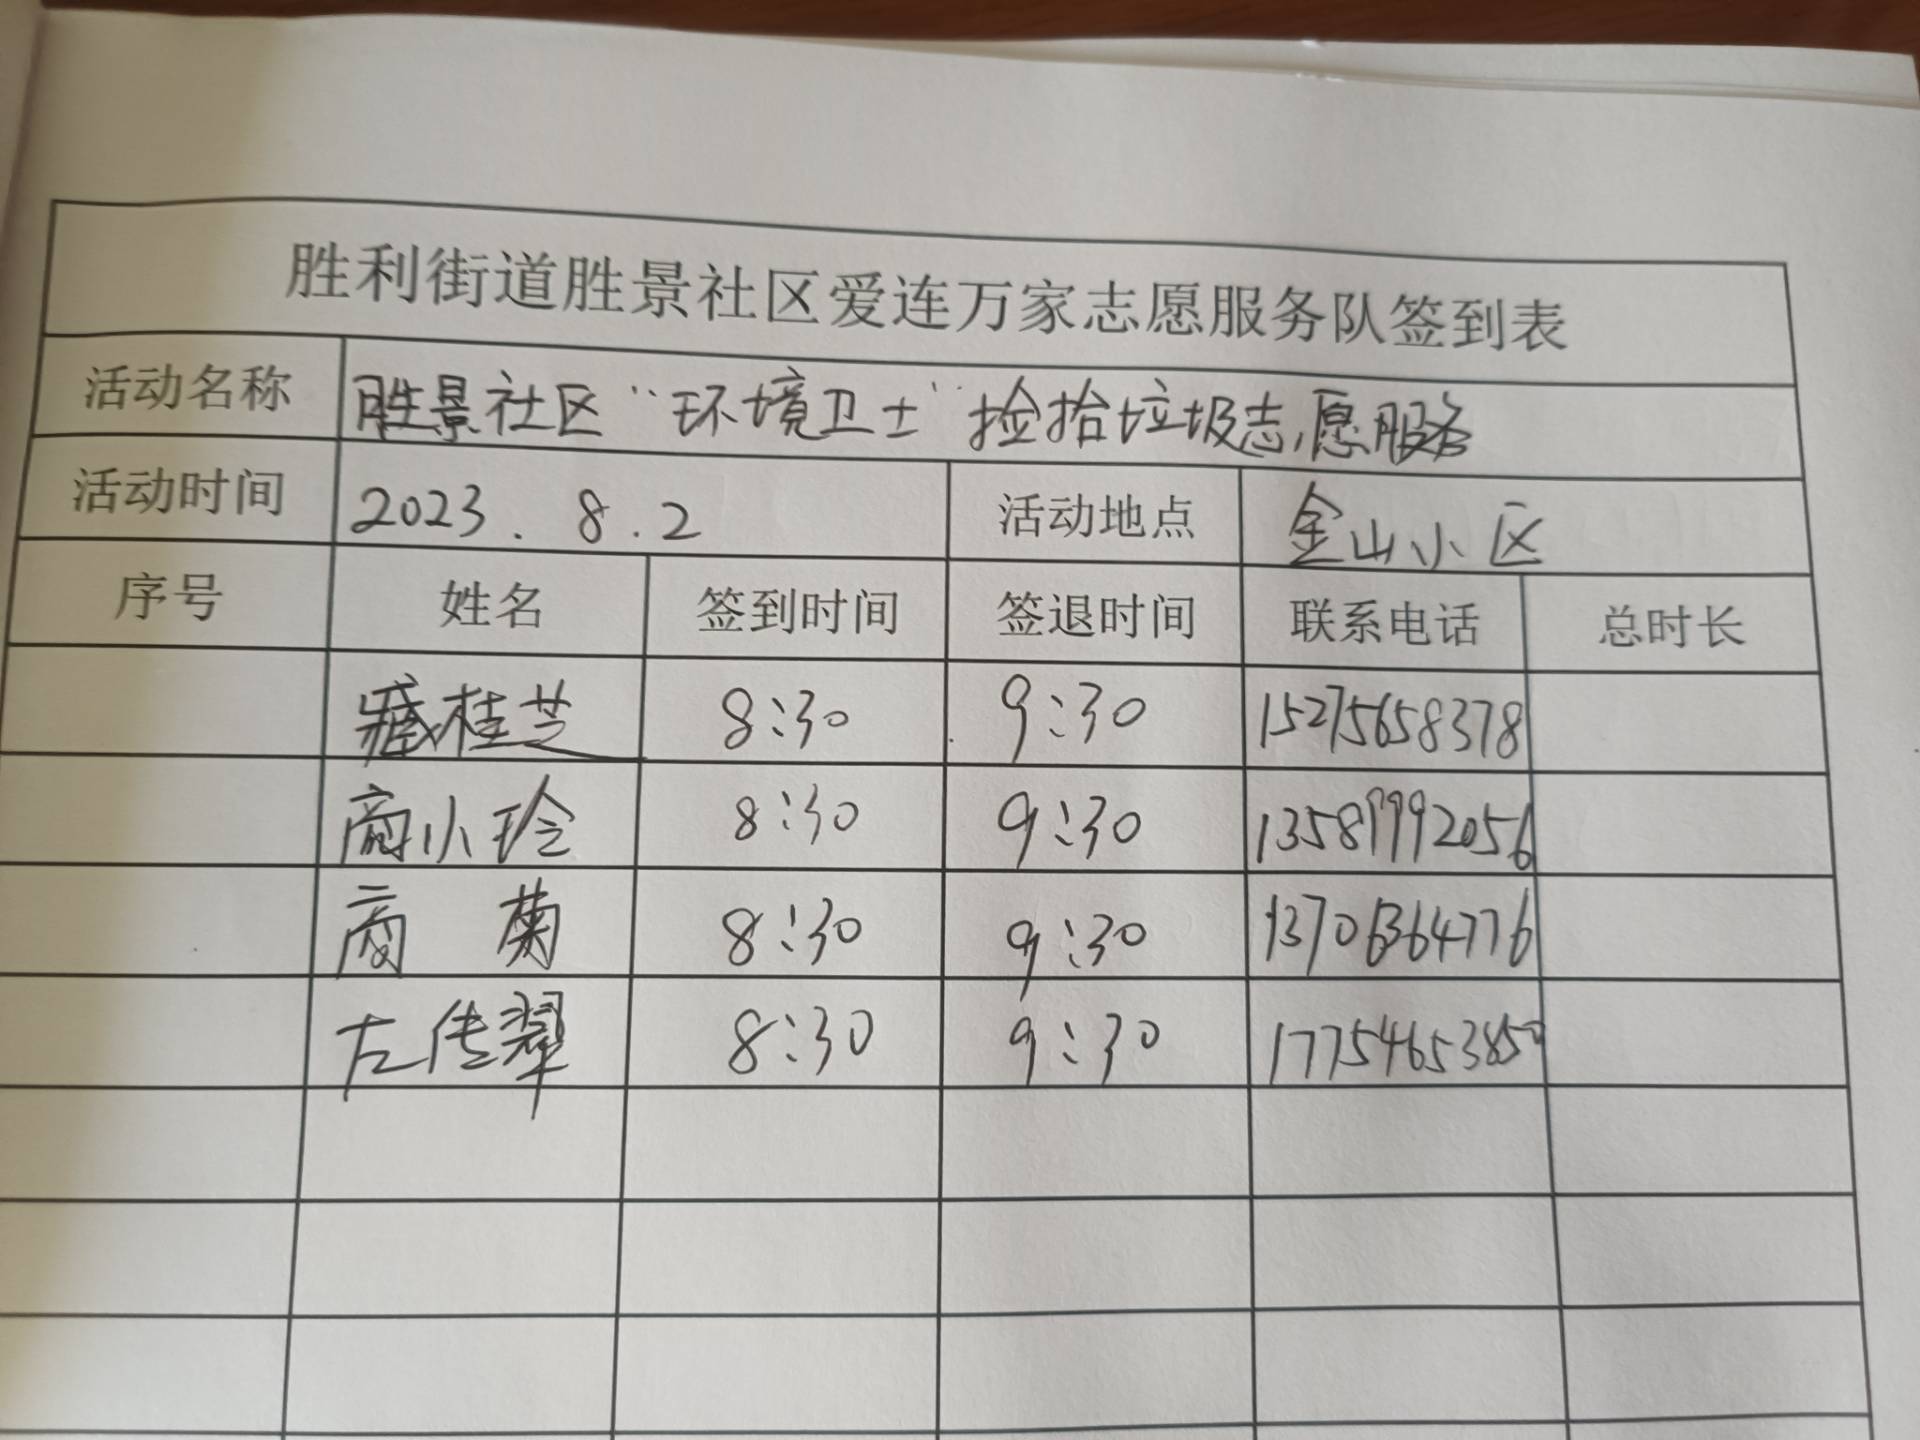 胜利街道胜景社区爱连万家志愿服务队签到表
活动名称 胜景社区“环境卫士”捡拾垃圾志愿服务
活动时间 2023.8.2 活动地点 金山小区
序号 姓名 签到时间 签退时间 联系电话 总时长
臧桂芝 8:30 9:30 15275658378
商小玲 8:30 9:30 13589992056
商 菊 8:30 9:30 13706364776
左传翠 8:30 9:30 17754653850